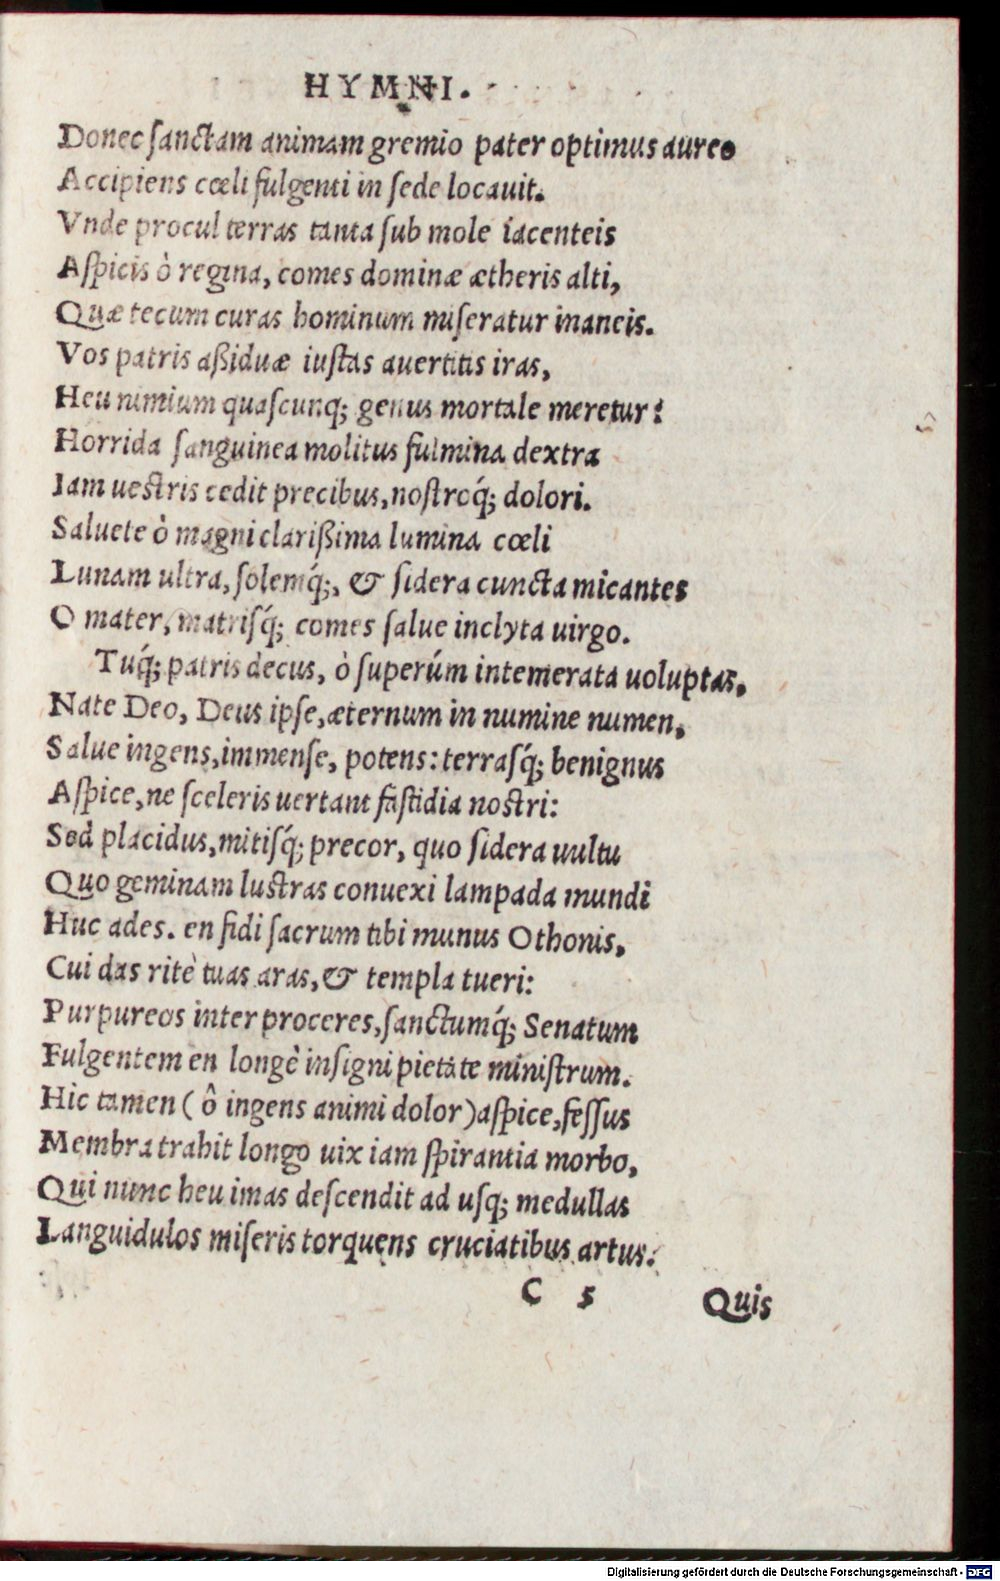 HYMNI.
Donec ſanctam animam gremio pater optimus aureo
Accipiens cœli fulgenti in ſede locauit.
Vnde procul terras tanta ſub mole iacenteis
Aſpicis ò regina, comes dominæ ætheris alti,
Quæ tecum curas hominum miſeratur inaneis.
Vos patris aßiduæ iuſtas auertitis iras,
Heu nimium quaſcunq; genus mortale meretur!
Horrida ſanguinea molitus fulmina dextra
Iam ueſtris cedit precibus, noſtroq́; dolori.
Saluete ò magni clarißima lumina cœli
Lunam ultra, ſolemq́;, & ſidera cuncta micantes
O mater, matriſq́; comes ſalue inclyta uirgo.
Tuq́; patris decus, ò ſuperûm intemerata uoluptas,
Nate Deo, Deus ipſe, æternum in numine numen,
Salue ingens, immenſe, potens: terraſq́; benignus
Aſpice, ne ſceleris uertant faſtidia noſtri:
Sed placidus, mitiſq́; precor, quo ſidera uultu
Quo geminam luſtras conuexi lampada mundi
Huc ades. en fidi ſacrum tibi munus Othonis,
Cui das ritè tuas aras, & templa tueri:
Purpureos inter proceres, ſanctumq́; Senatum
Fulgentem en longè inſigni pietate miniſtrum.
Hic tamen (ô ingens animi dolor) aſpice, feſſus
Membra trahit longo uix iam ſpirantia morbo,
Qui nunc heu imas deſcendit ad uſq; medullas
Languidulos miſeris torquens cruciatibus artus.
C 5 Quis
Digitalisierung gefördert durch die Deutsche Forschungsgemeinschaft - DFG